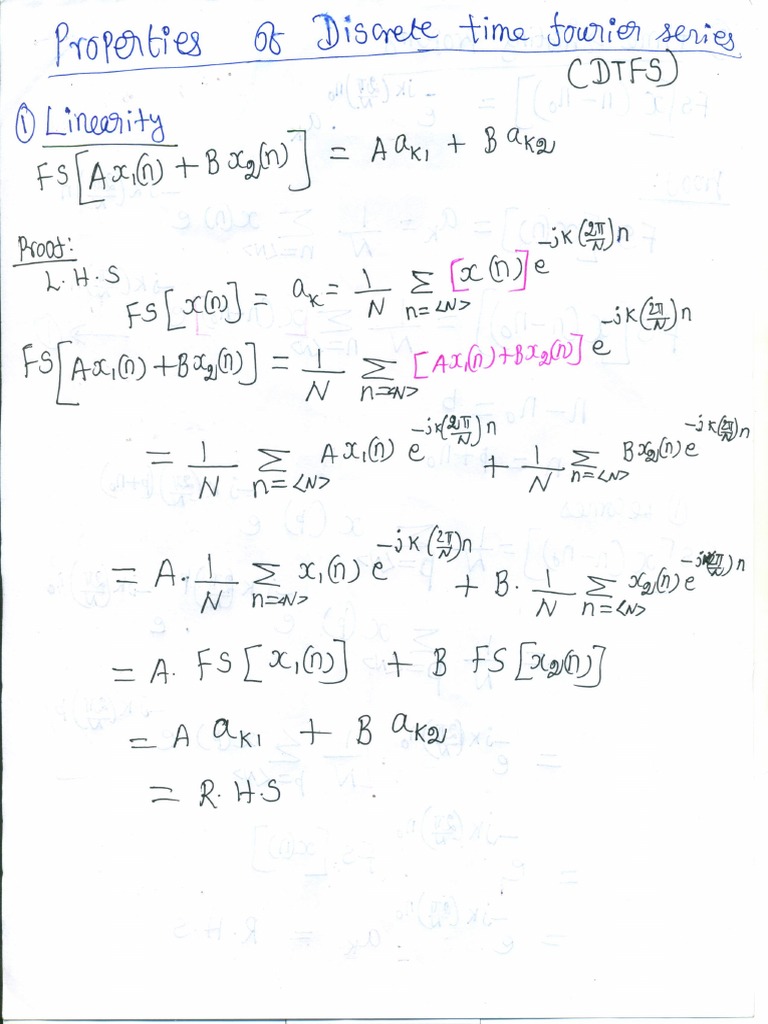 Properties of Discrete time fourier series
(DTFS)
① Linearity
FS[Ax₁(n) + Bx₂(n)] = A aₖ₁ + B aₖ₂
Proof:
L.H.S
FS[x(n)] = aₖ = 1/N Σ n=<N> [x(n)] e^-jk(2π/N)n
FS[Ax₁(n) + Bx₂(n)] = 1/N Σ n=<N> [Ax₁(n) + Bx₂(n)] e^-jk(2π/N)n
= 1/N Σ n=<N> Ax₁(n) e^-jk(2π/N)n + 1/N Σ n=<N> Bx₂(n) e^-jk(2π/N)n
= A. 1/N Σ n=<N> x₁(n) e^-jk(2π/N)n + B. 1/N Σ n=<N> x₂(n) e^-jk(2π/N)n
= A. FS[x₁(n)] + B FS[x₂(n)]
= A aₖ₁ + B aₖ₂
= R.H.S